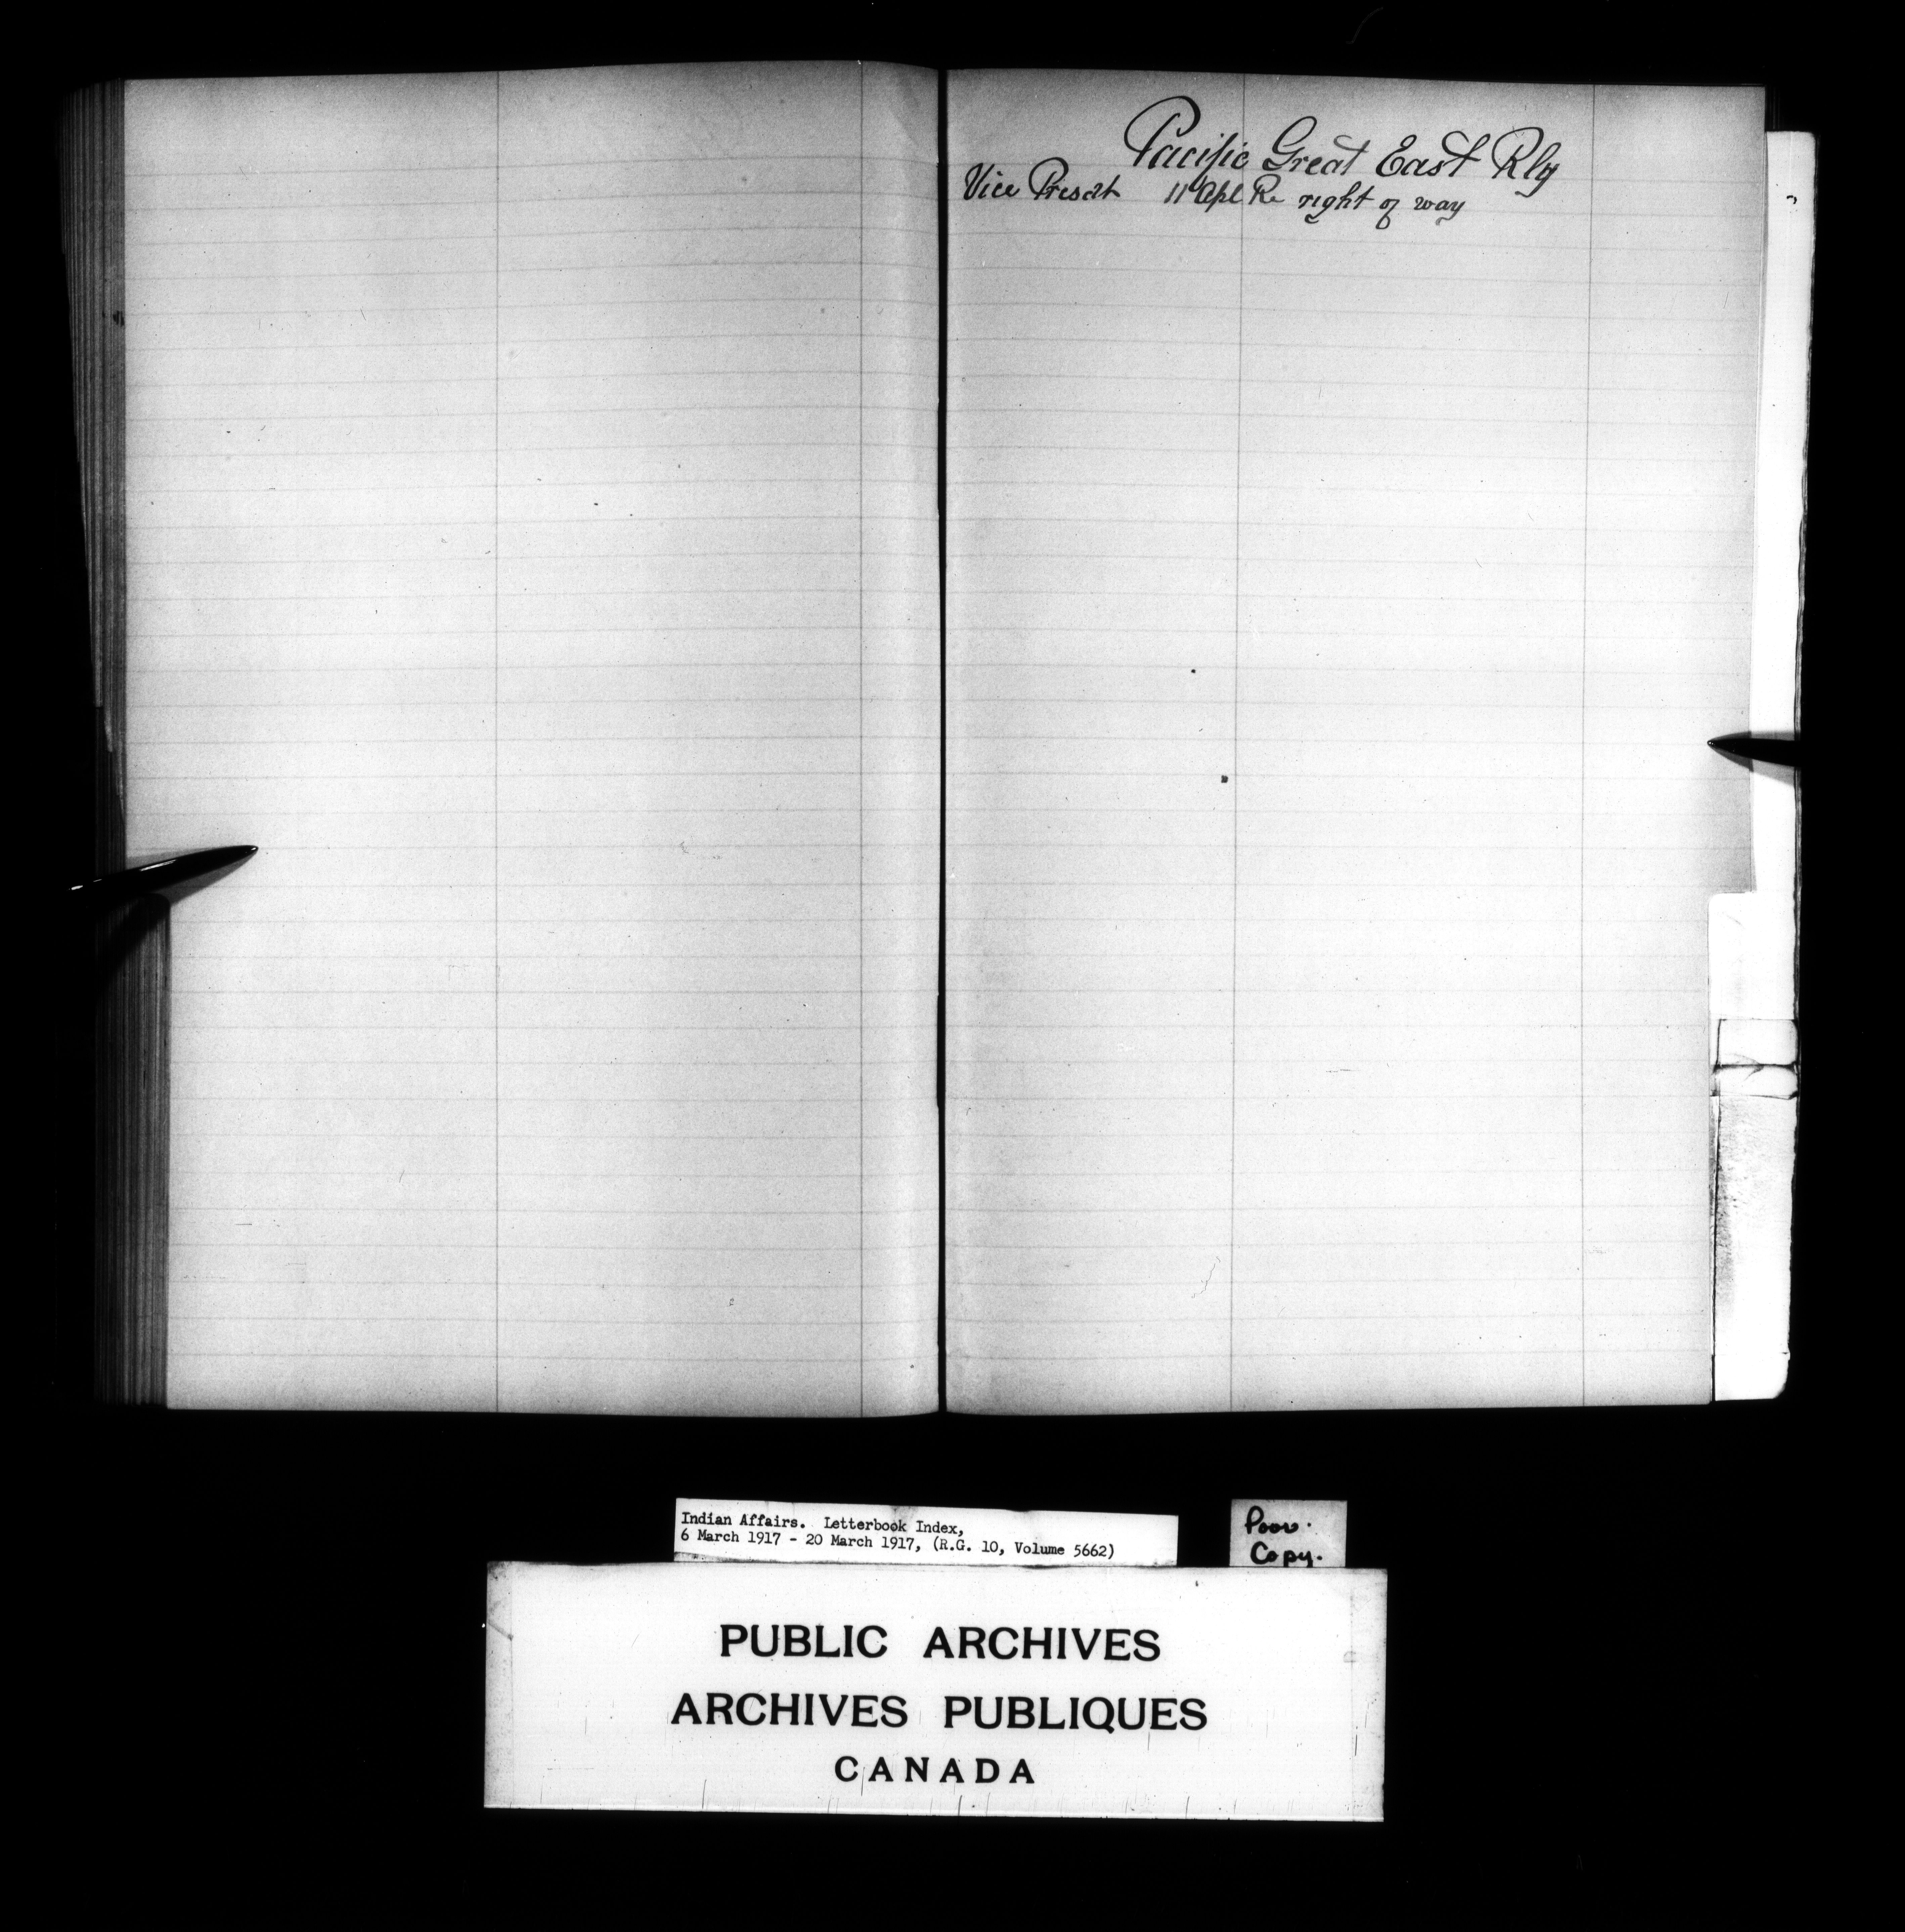 Pacific Great East Rly
Vice Presdt 11 Apl Re right of way
Indian Affairs. Letterbook Index,
6 March 1917 - 20 March 1917, (R.G. 10, Volume 5662)
Poor.
Copy.
PUBLIC ARCHIVES
ARCHIVES PUBLIQUES
CANADA